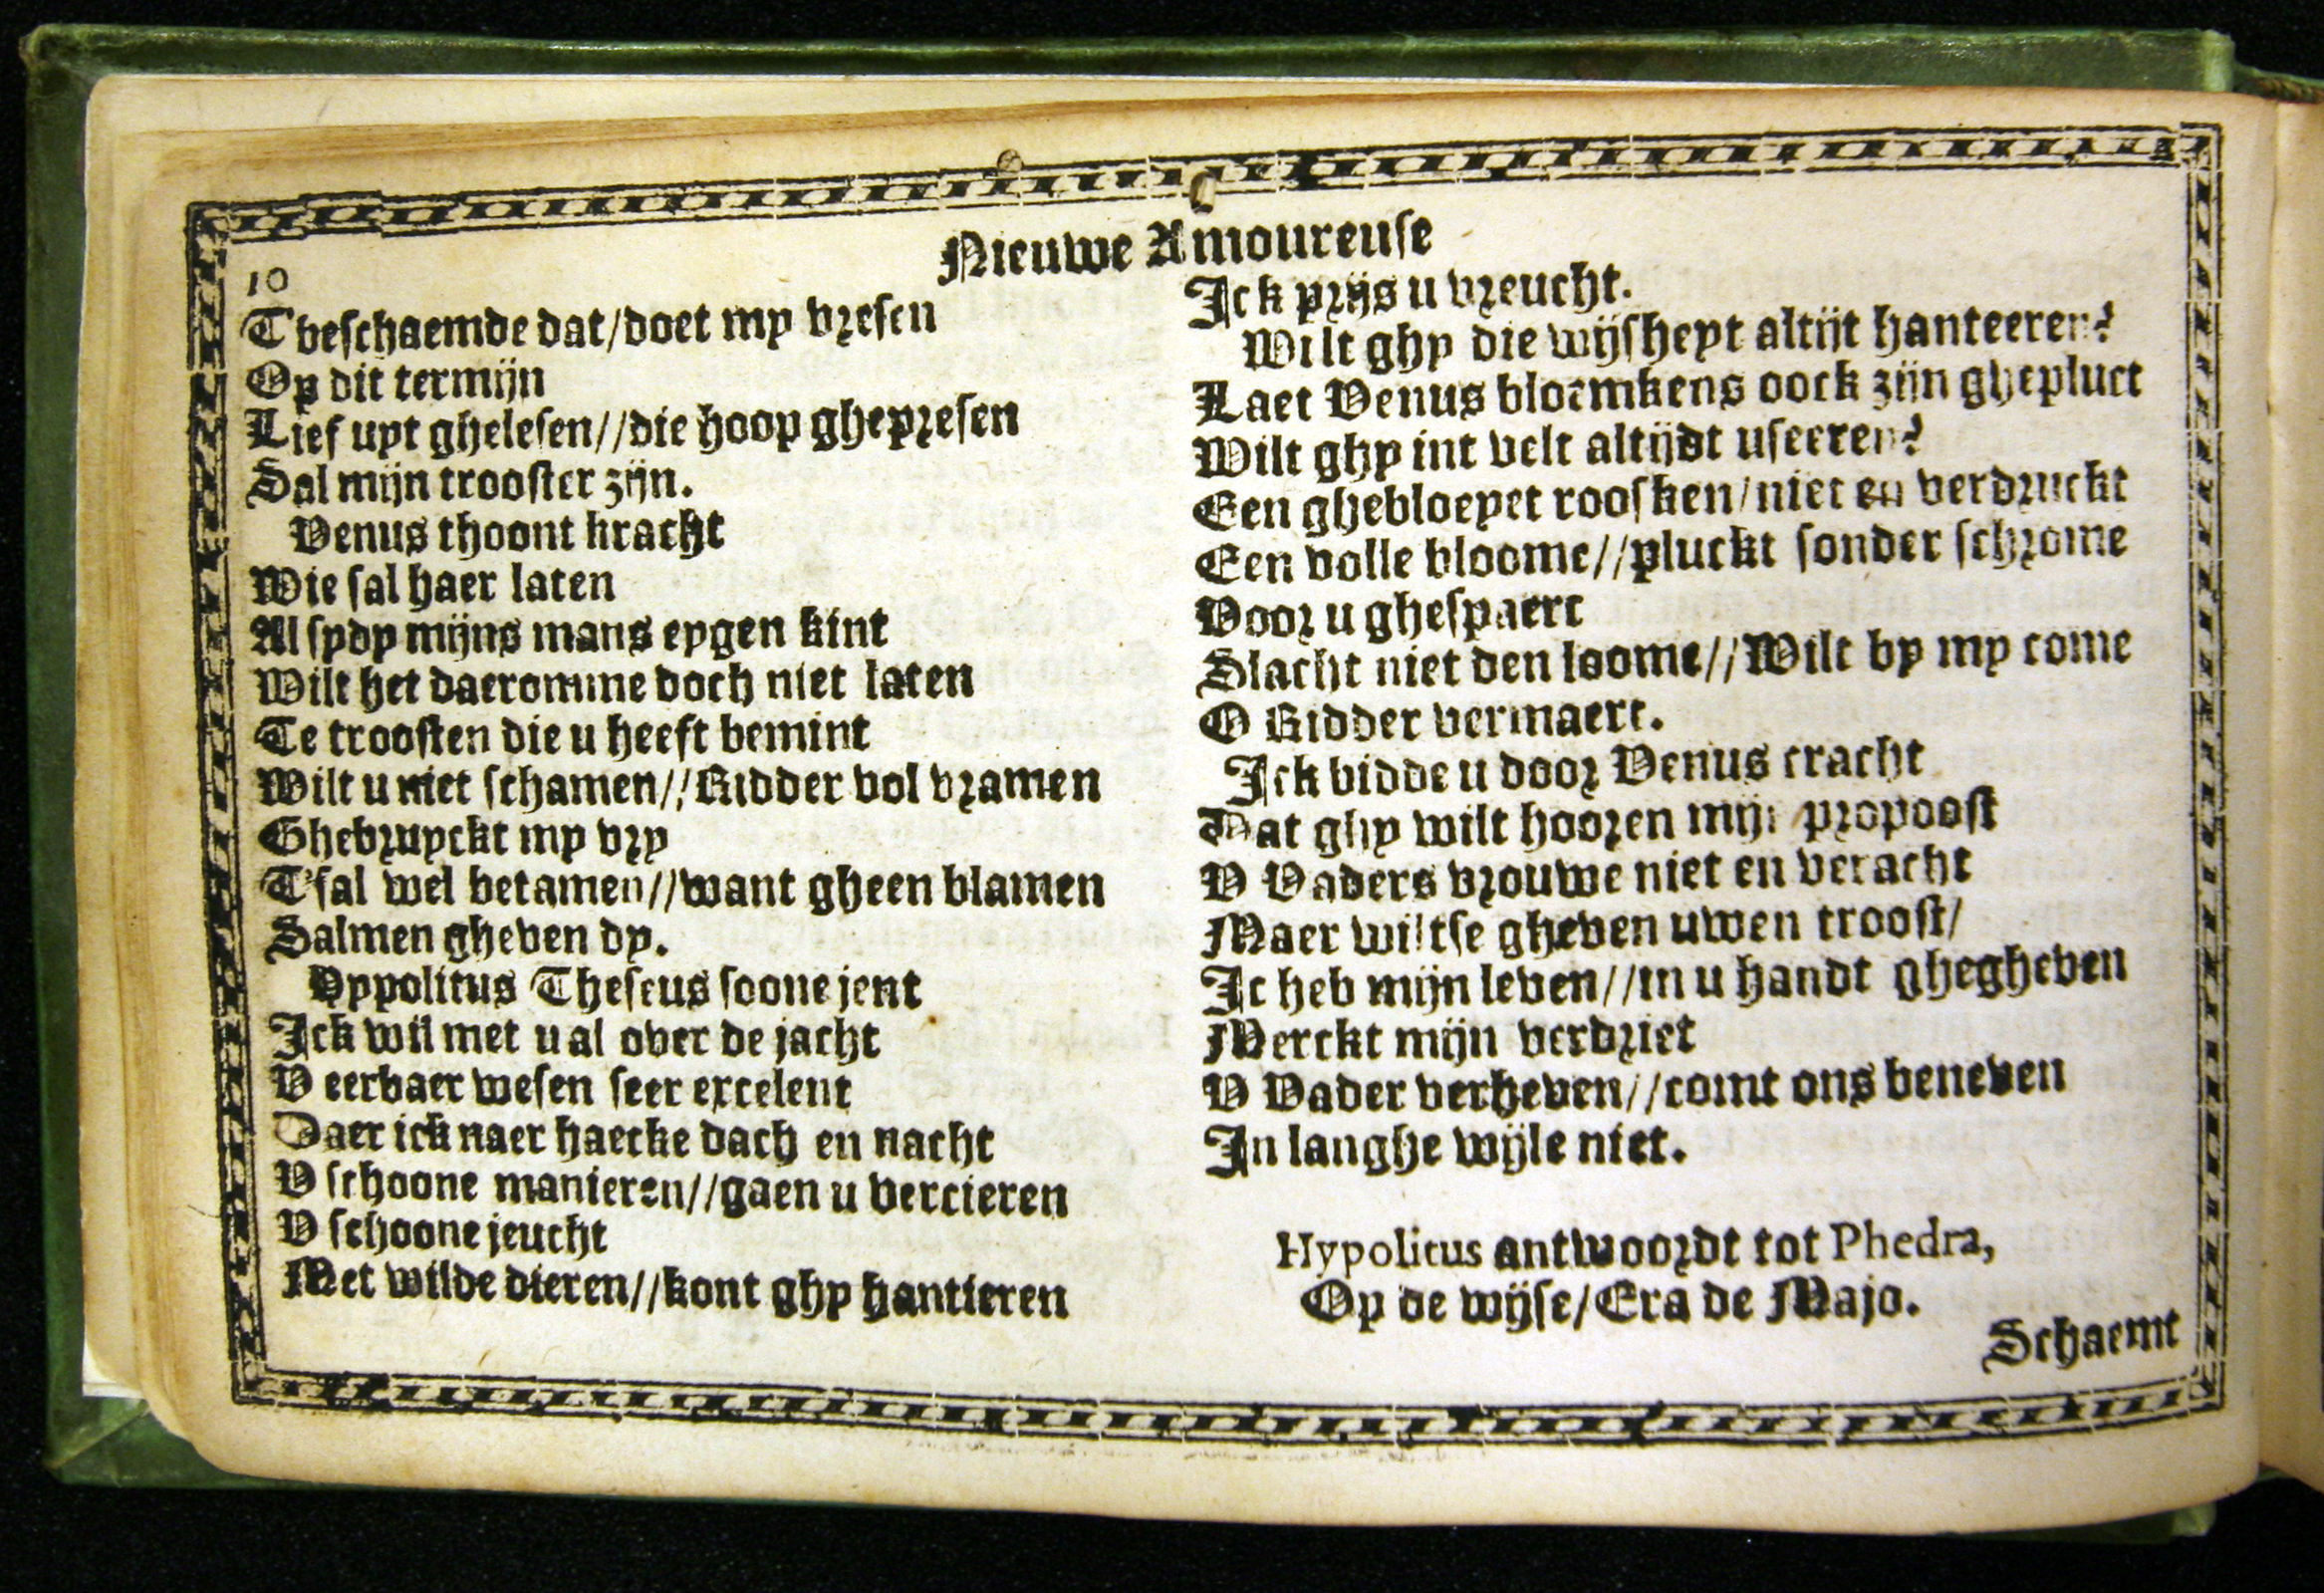 Nieuwe Amoureuse
10
T'beschaemde dat/doet my vresen
Op dit termijn
Lief uyt ghelesen//die hoop ghepresen
Sal mijn trooster zijn.
Venus thoont kracht
Wie sal haer laten
Al sydy mijns mans eygen kint
Wilt het daeromme doch niet laten
Te troosten die u heeft bemint
Wilt u niet schamen//Ridder vol vramen
Ghebruyckt my vry
T'sal wel betamen//want gheen blamen
Salmen gheven dy.
Yppolitus Theseus soone jent
Ick wil met u al over de jacht
V eerbaer wesen seer excelent
Daer ick naer haecke dach en nacht
V schoone manieren//gaen u vercieren
V schoone jeucht
Met wilde dieren//kont ghy hantieren
Ick prijs u vreucht.
Wilt ghy die wijsheyt altijt hanteeren?
Laet Venus bloemkens oock zijn ghepluct
Wilt ghy int velt altijdt useeren?
Een ghebloeyet roosken/niet en verdruckt
Een volle bloome//pluckt sonder schrome
Voor u ghespaert
Slacht niet den loome//Wilt by my come
O Ridder vermaert.
Ick bidde u door Venus cracht
Dat ghy wilt hooren mijn propoost
V Vaders vrouwe niet en veracht
Maer wiltse gheven uwen troost/
Ic heb mijn leven//in u handt ghegheven
Merckt mijn verdriet
V Vader verheven//comt ons beneven
In langhe wijle niet.
Hypolitus antwoordt tot Phedra,
Op de wijse/Era de Majo.
Schaemt